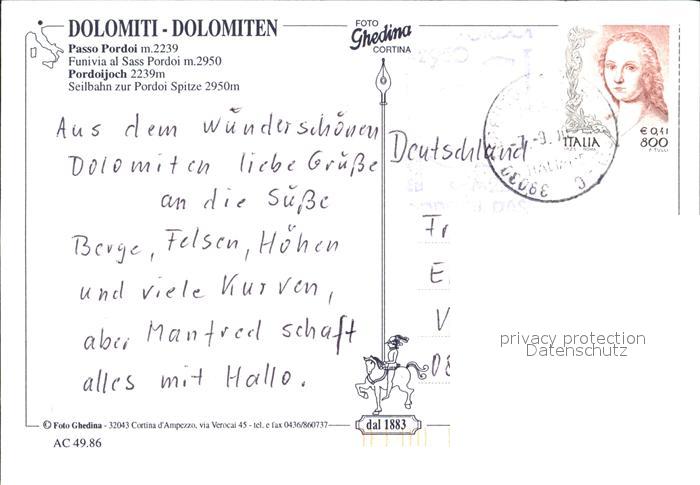 DOLOMITI - DOLOMITEN
Passo Pordoi m.2239
Funivia al Sass Pordoi m.2950
Pordoijoch 2239m
Seilbahn zur Pordoi Spitze 2950m
FOTO
Ghedina
CORTINA
€ 0,41
ITALIA 800
Aus dem wunderschönen
Dolomiten liebe Grüße
an die Süße
Berge, Felsen, Höhen
und viele Kurven,
aber Manfred schaft
alles mit Hallo.
Deutschland
Fr
E
V
privacy protection
Datenschutz
© Foto Ghedina - 32043 Cortina d'Ampezzo, via Verocai 45 - tel. e fax 0436/860737
dal 1883
AC 49.86